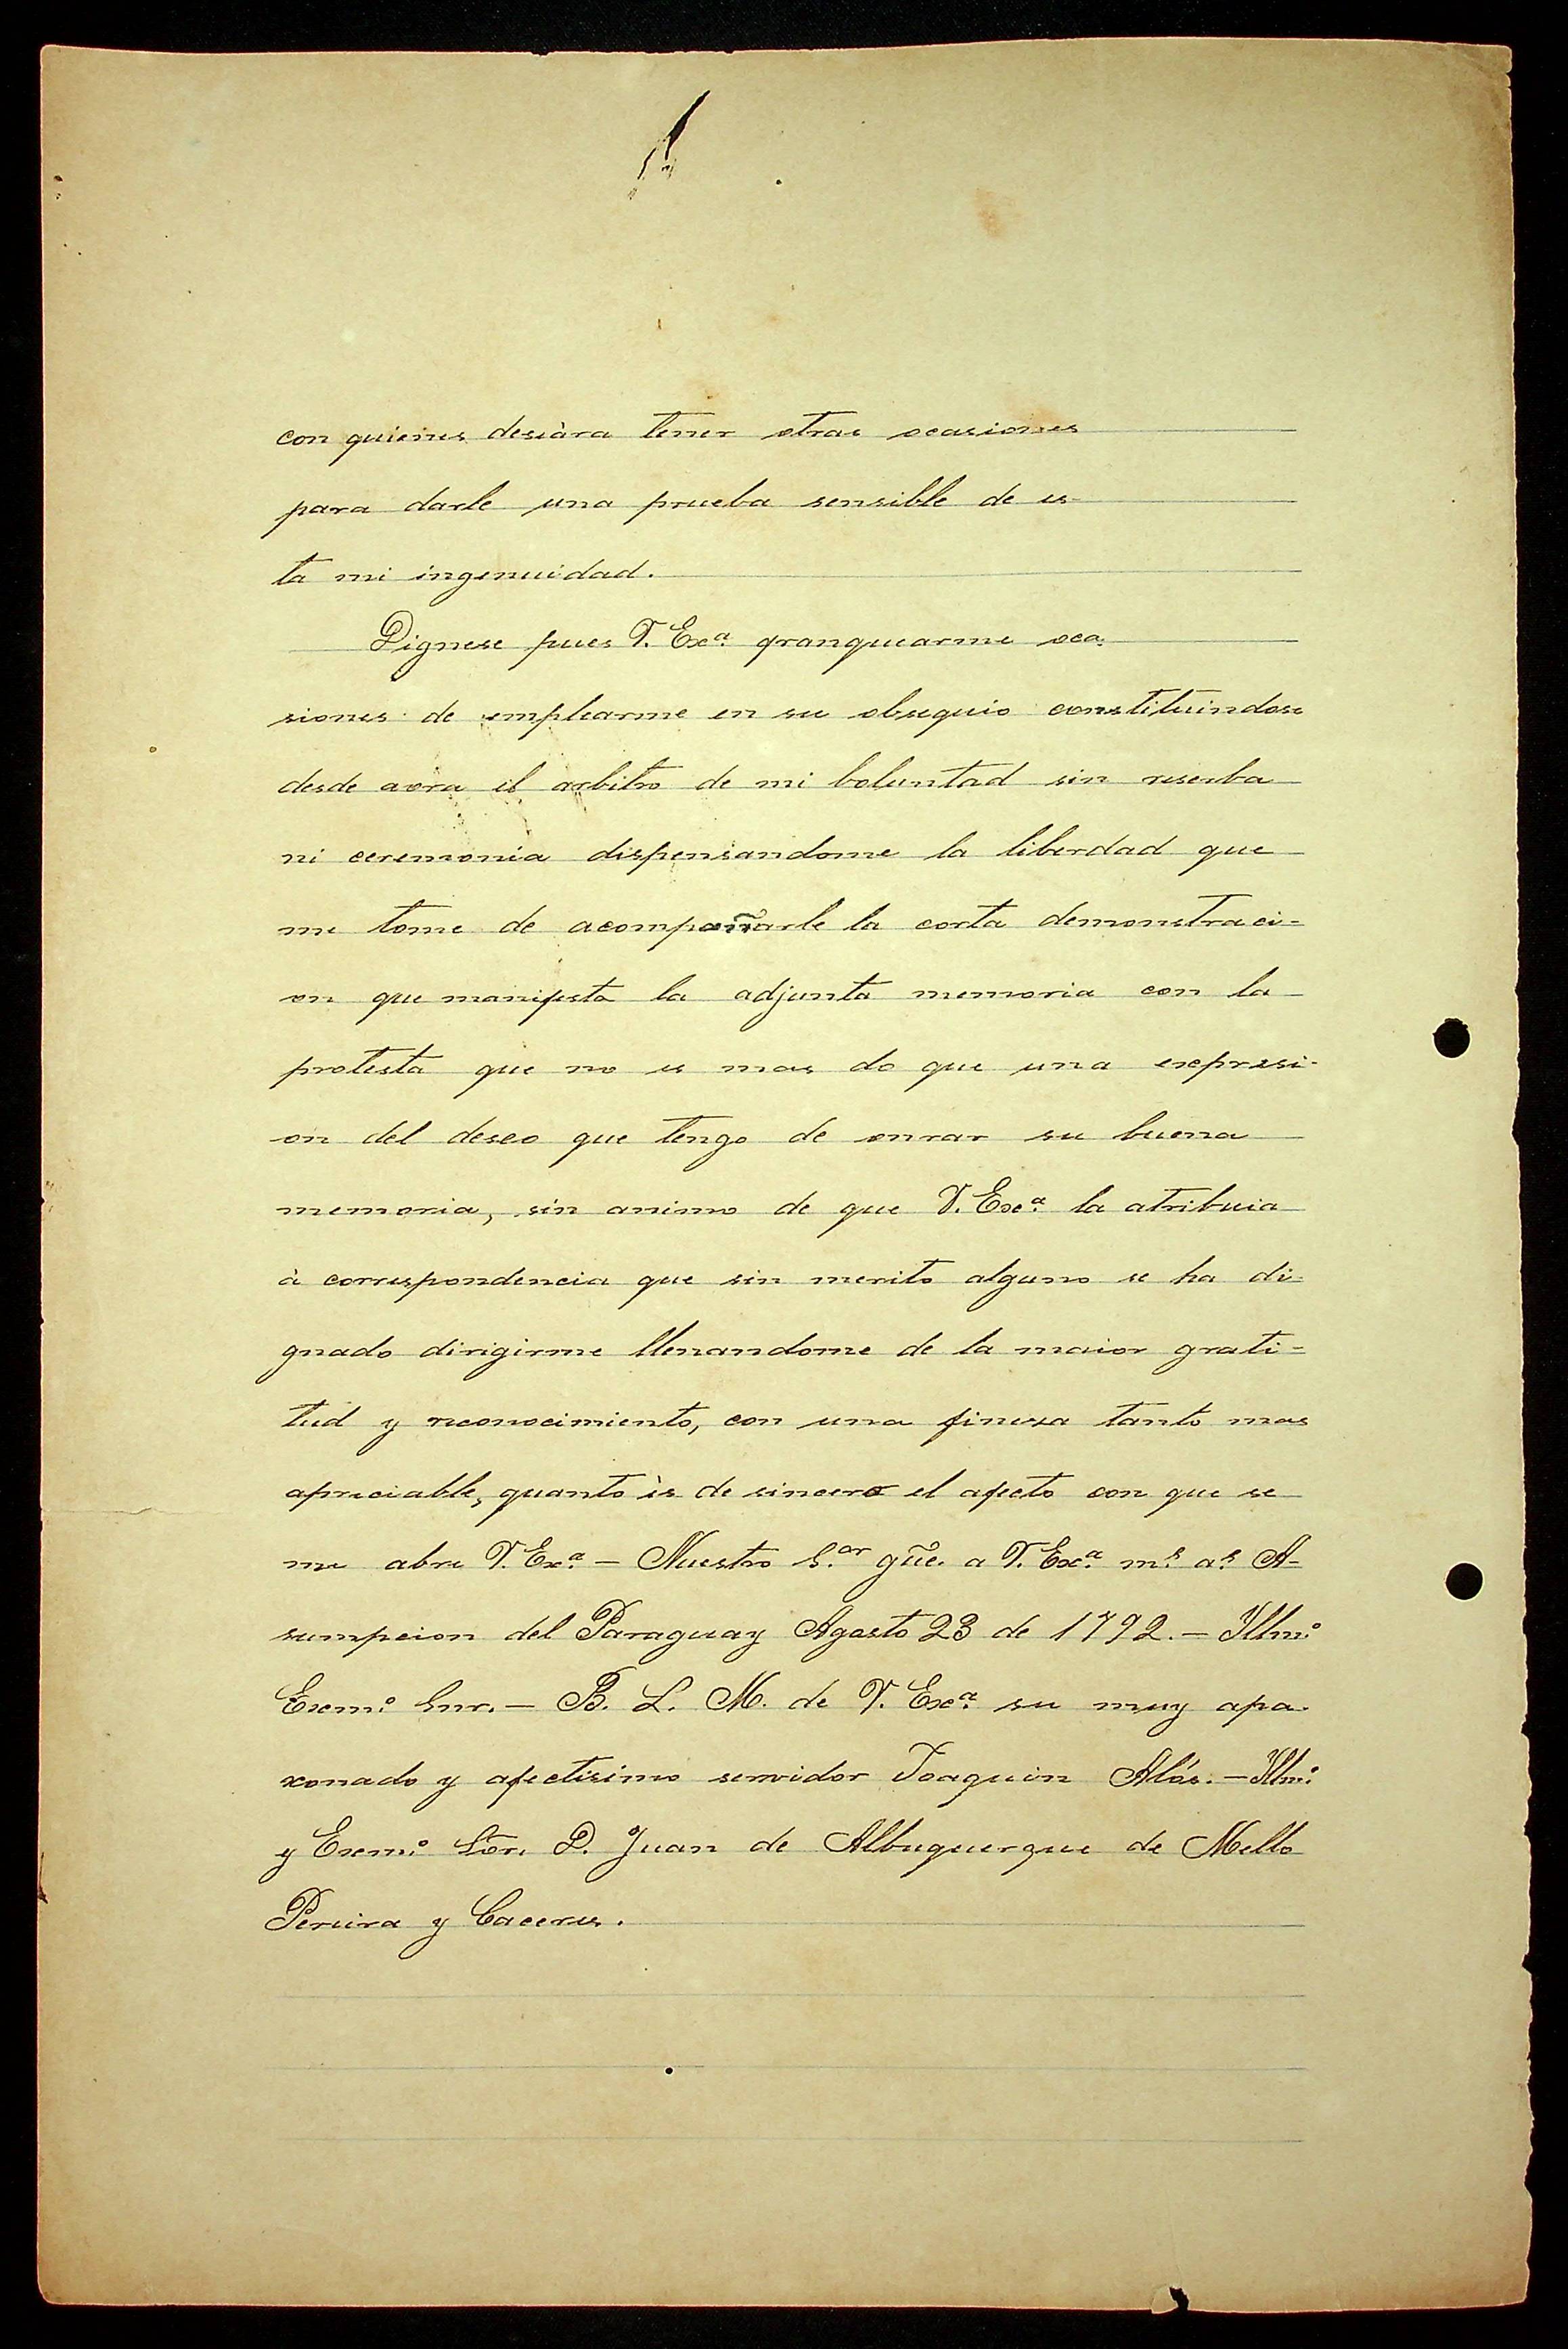 con quienes deseàra tener otras ocasiones
para darle una prueba sensible de es-
ta mi ingenuidad.
Dignese pues V. Exª granquearme oca-
siones de emplearme en su obsequio constituindose
desde aora el arbitro de mi boluntad sin reserba
ni ceremonia dispensandome la liberdad que
me tome de acompañarle la corta demonstraci-
on que manifesta la adjunta memoria con la
protesta que no es mas do que una expresi-
on del deseo que tengo de onrar su buena
memoria, sin animo de que V. Exª la atribuia
à correspondencia que sin merito alguno se ha di-
gnado dirigirme llenandome de la maior grati-
tud y reconocimiento, con una finesa tanto mas
apreciable, quanto ès de sincero el afecto con que se
me abre V. Exª — Nuestro S.or gũe. a V. Exª mˢ aˢ A-
sumpcion del Paraguay Agosto 23 de 1792. — Illmº
Exemº Snr. — B. L. M. de V. Exª su muy apa-
xonado y afectisimo servidor Joaquin Alós. — Illmº
y Exemº Sõr. D. Juan de Albuquerque de Mello
Pereira y Caceres.